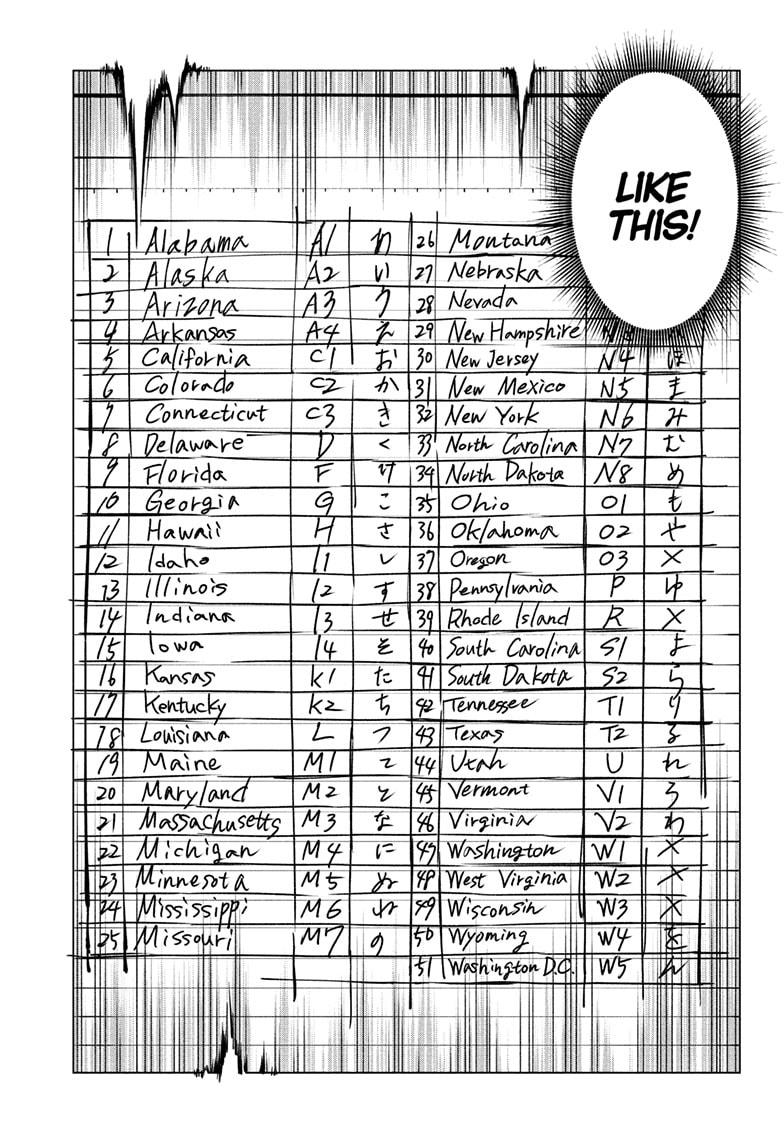 LIKE
THIS!
1 Alabama A1
2 Alaska A2 い
3 Arizona A3 う
4 Arkansas A4 え
5 California C1 お
6 Colorado C2 か
7 Connecticut C3 き
8 Delaware D く
9 Florida F け
10 Georgia G こ
11 Hawaii H さ
12 Idaho I1 し
13 Illinois I2 す
14 Indiana I3 せ
15 Iowa I4 そ
16 Kansas K1 た
17 Kentucky K2 ち
18 Louisiana L つ
19 Maine M1 て
20 Maryland M2 と
21 Massachusetts M3 な
22 Michigan M4 に
23 Minnesota M5 ぬ
24 Mississippi M6 ね
25 Missouri M7 の
26 Montana
27 Nebraska
28 Nevada
29 New Hampshire
30 New Jersey N4 ほ
31 New Mexico N5 ま
32 New York N6 み
33 North Carolina N7 む
34 North Dakota N8 め
35 Ohio O1 も
36 Oklahoma O2 や
37 Oregon O3 X
38 Pennsylvania P ゆ
39 Rhode Island R X
40 South Carolina S1 よ
41 South Dakota S2 ら
42 Tennessee T1 り
43 Texas T2 る
44 Utah U れ
45 Vermont V1 ろ
46 Virginia V2 わ
47 Washington W1 X
48 West Virginia W2 X
49 Wisconsin W3 X
50 Wyoming W4 を
51 Washington D.C. W5 ん